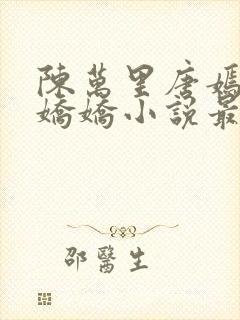 陳萬里唐嫣
嬌嬌小說最
邵醫生